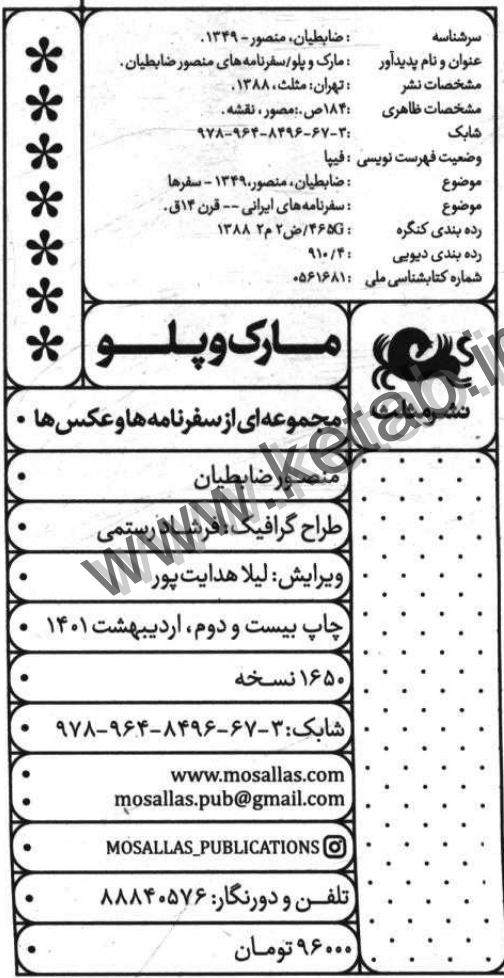 سرشناسه : ضابطیان، منصور - ۱۳۴۹.
عنوان و نام پدیدآور : مارک و پلو/سفرنامه‌های منصور ضابطیان.
مشخصات نشر : تهران: مثلث، ۱۳۸۸.
مشخصات ظاهری : ۱۸۴ص.:مصور، نقشه.
شابک : ۹۷۸-۹۶۴-۸۴۹۶-۶۷-۳
وضعیت فهرست نویسی : فیپا
موضوع : ضابطیان، منصور،۱۳۴۹ - سفرها
موضوع : سفرنامه‌های ایرانی -- قرن ۱۴ق.
رده بندی کنگره : ۴۶۵G/ض۲ م۲ ۱۳۸۸
رده بندی دیویی : ۹۱۰/۴
شماره کتابشناسی ملی : ۰۵۶۱۶۸۱
مارک و پلو
نشر مثلث
مجموعه‌ای از سفرنامه‌ها و عکس‌ها
منصور ضابطیان
طراح گرافیک: فرشاد رستمی
ویرایش: لیلا هدایت‌پور
چاپ بیست و دوم، اردیبهشت ۱۴۰۱
۱۶۵۰ نسخه
شابک: ۹۷۸-۹۶۴-۸۴۹۶-۶۷-۳
www.mosallas.com
mosallas.pub@gmail.com
MOSALLAS_PUBLICATIONS
تلفن و دورنگار: ۸۸۸۴۰۵۷۶
۹۶۰۰۰ تومان
www.ketab.ir